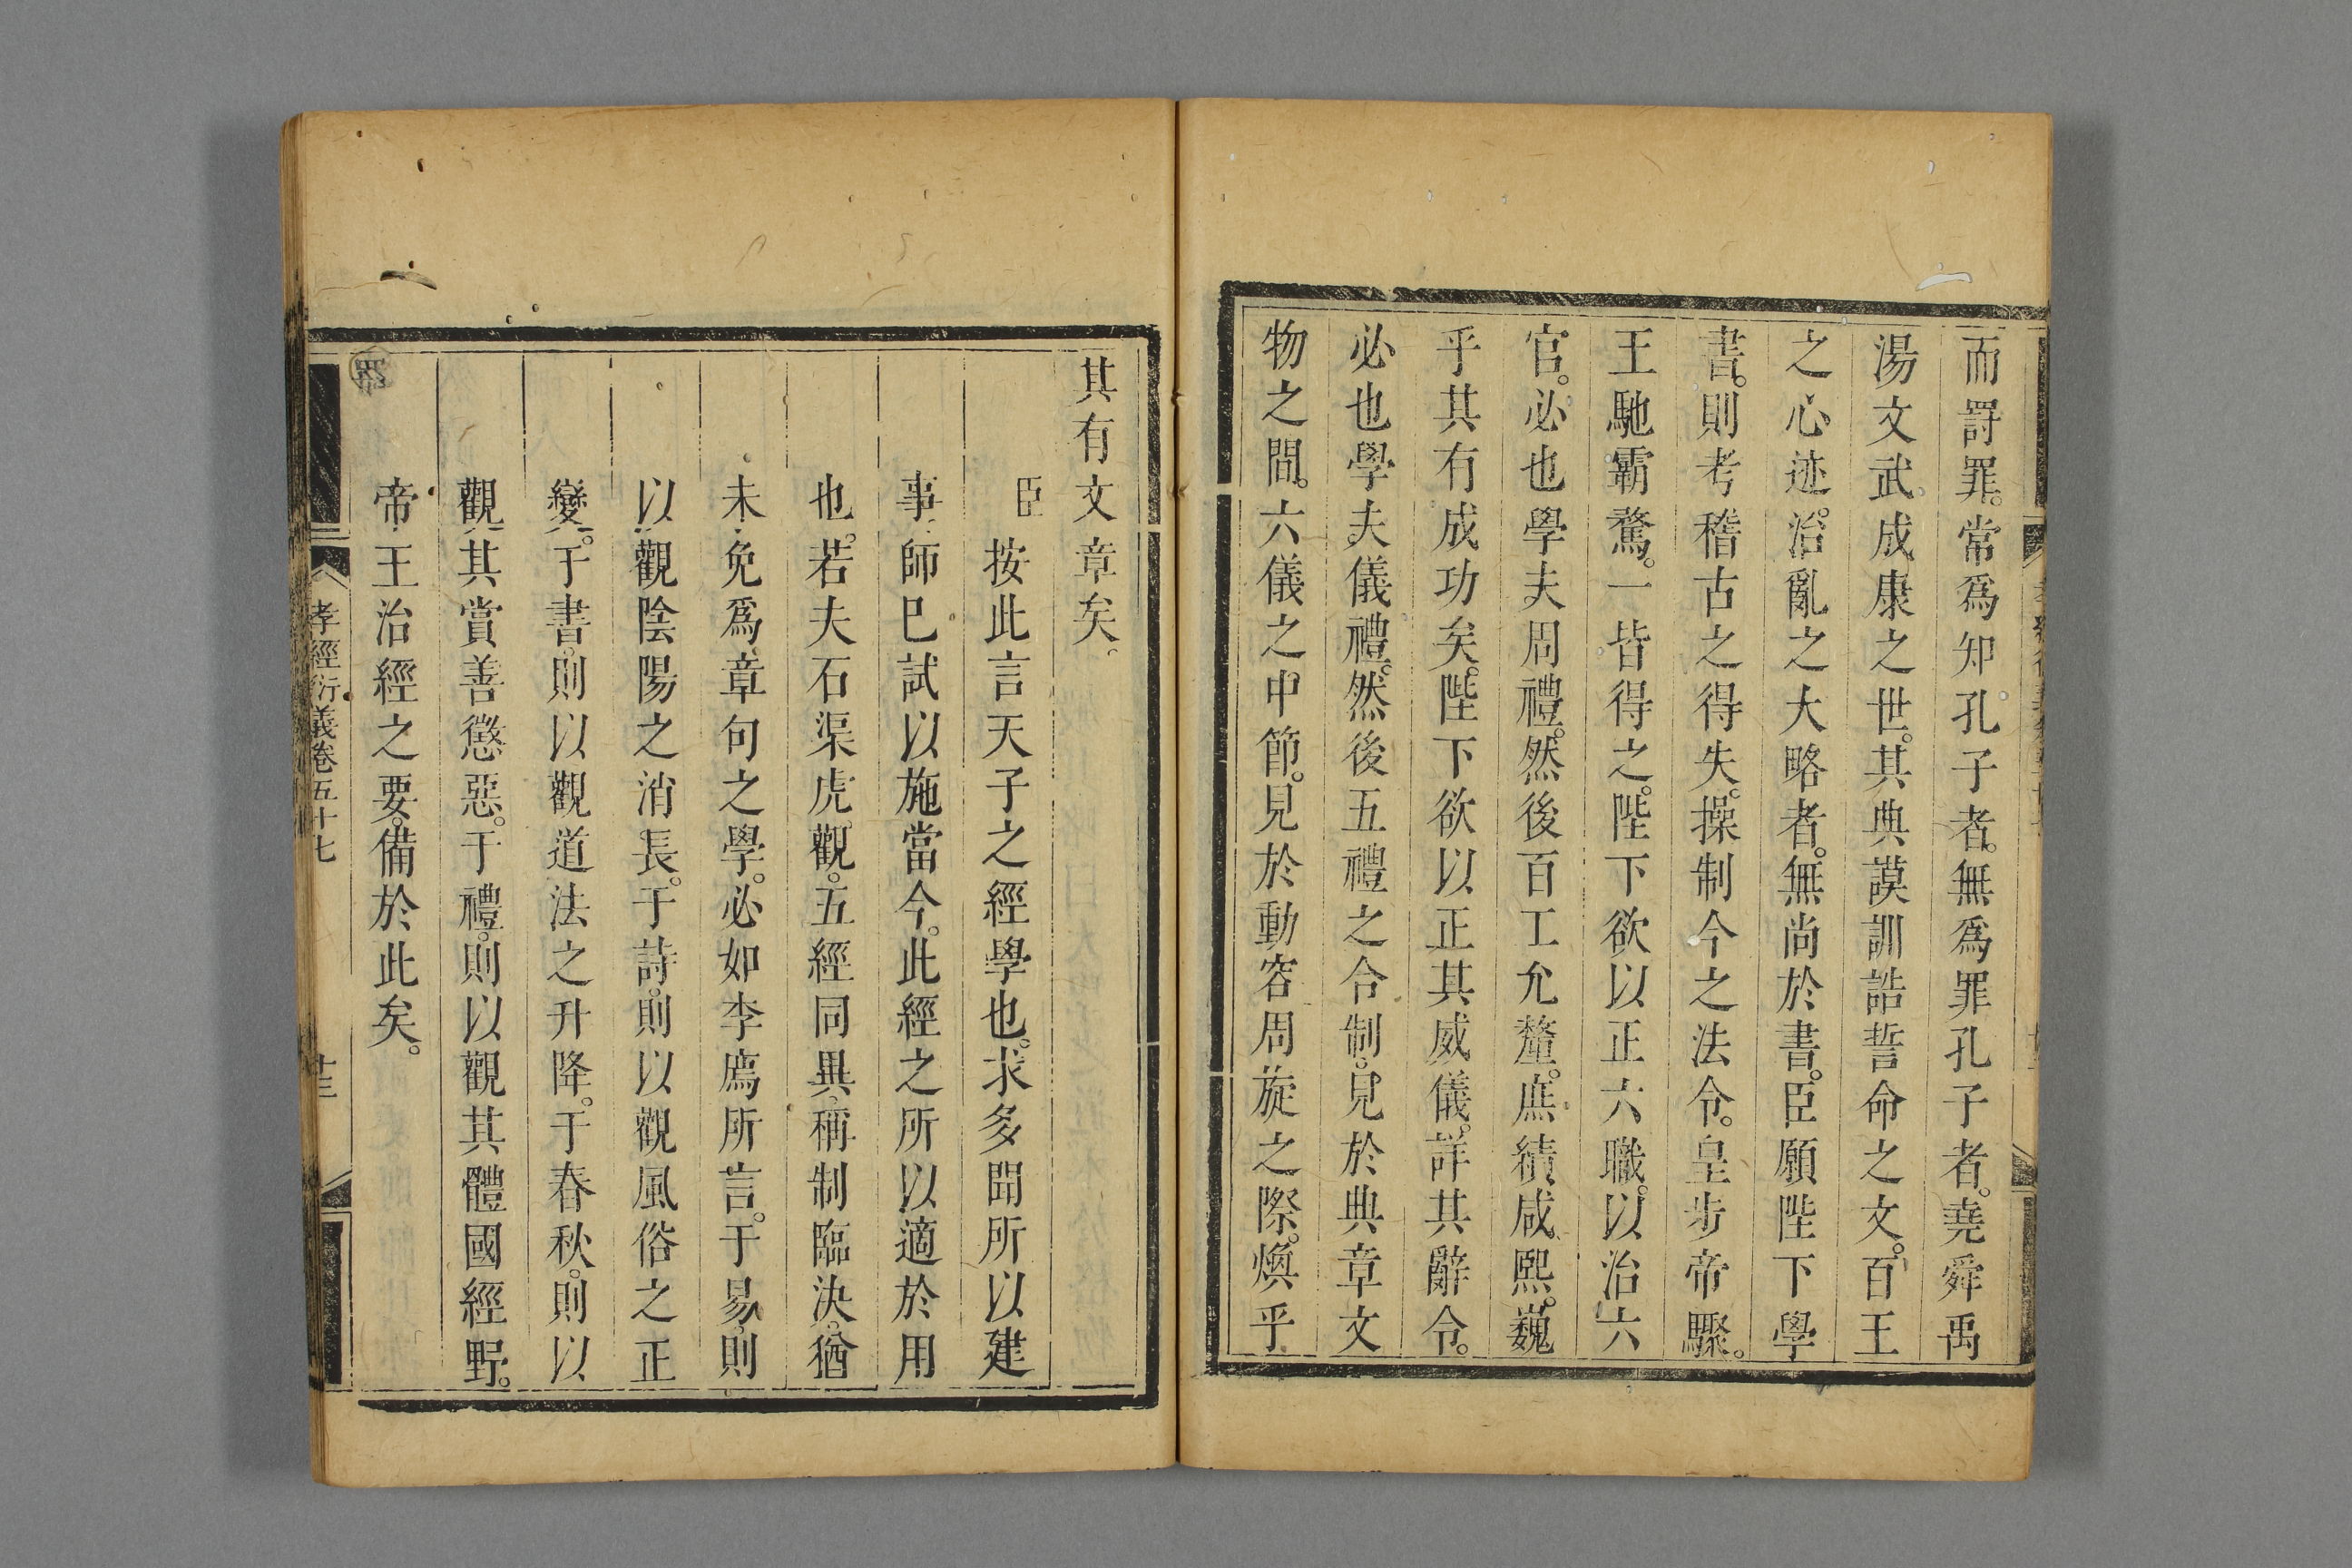 而罸罪。常爲知孔子者。無爲罪孔子者。堯舜禹
湯文武。成康之世。其典謨訓誥誓命之文。百王
之心迹。治亂之大略者。無尚於書。臣願陛下學
書。則考稽古之得失。操制今之法令。皇步帝驟。
王馳霸騖。一皆得之。陛下欲以正六職。以治六
官。必也學夫周禮。然後百工允釐。庶績咸熙。巍
乎其有成功矣。陛下欲以正其威儀。詳其辭令。
必也學夫儀禮。然後五禮之合制。見於典章文
物之間。六儀之中節。見於動容周旋之際。煥乎
其有文章矣。
臣按此言天子之經學也。求多聞所以建
事。師已試以施當今。此經之所以適於用
也。若夫石渠虎觀。五經同異。稱制臨決。猶
未免爲章句之學。必如李廌所言。于易。則
以觀陰陽之消長。于詩。則以觀風俗之正
變。于書。則以觀道法之升降。于春秋。則以
觀其賞善懲惡。于禮。則以觀其體國經野。
帝王治經之要。備於此矣。
孝經衍義卷五十七
十三